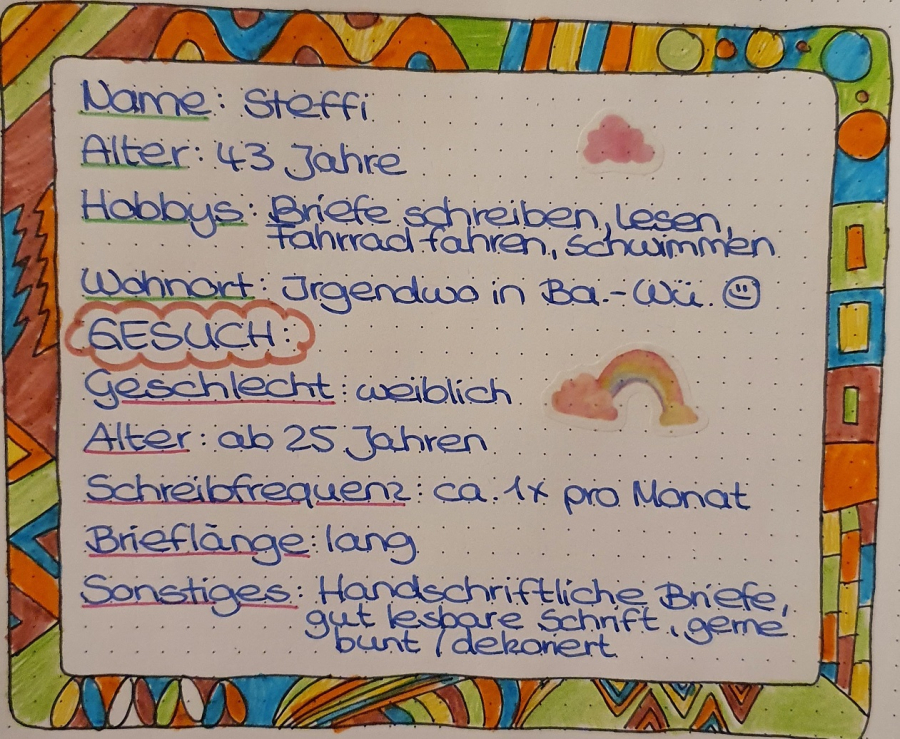 Name: Steffi
Alter: 43 Jahre
Hobbys: Briefe schreiben, lesen,
Fahrrad fahren, Schwimmen
Wohnort: Irgendwo in Ba.-Wü.
GESUCH:
Geschlecht: weiblich
Alter: ab 25 Jahren
Schreibfrequenz: ca. 1x pro Monat
Brieflänge: lang
Sonstiges: Handschriftliche Briefe,
gut lesbare Schrift, gerne
bunt / dekoriert